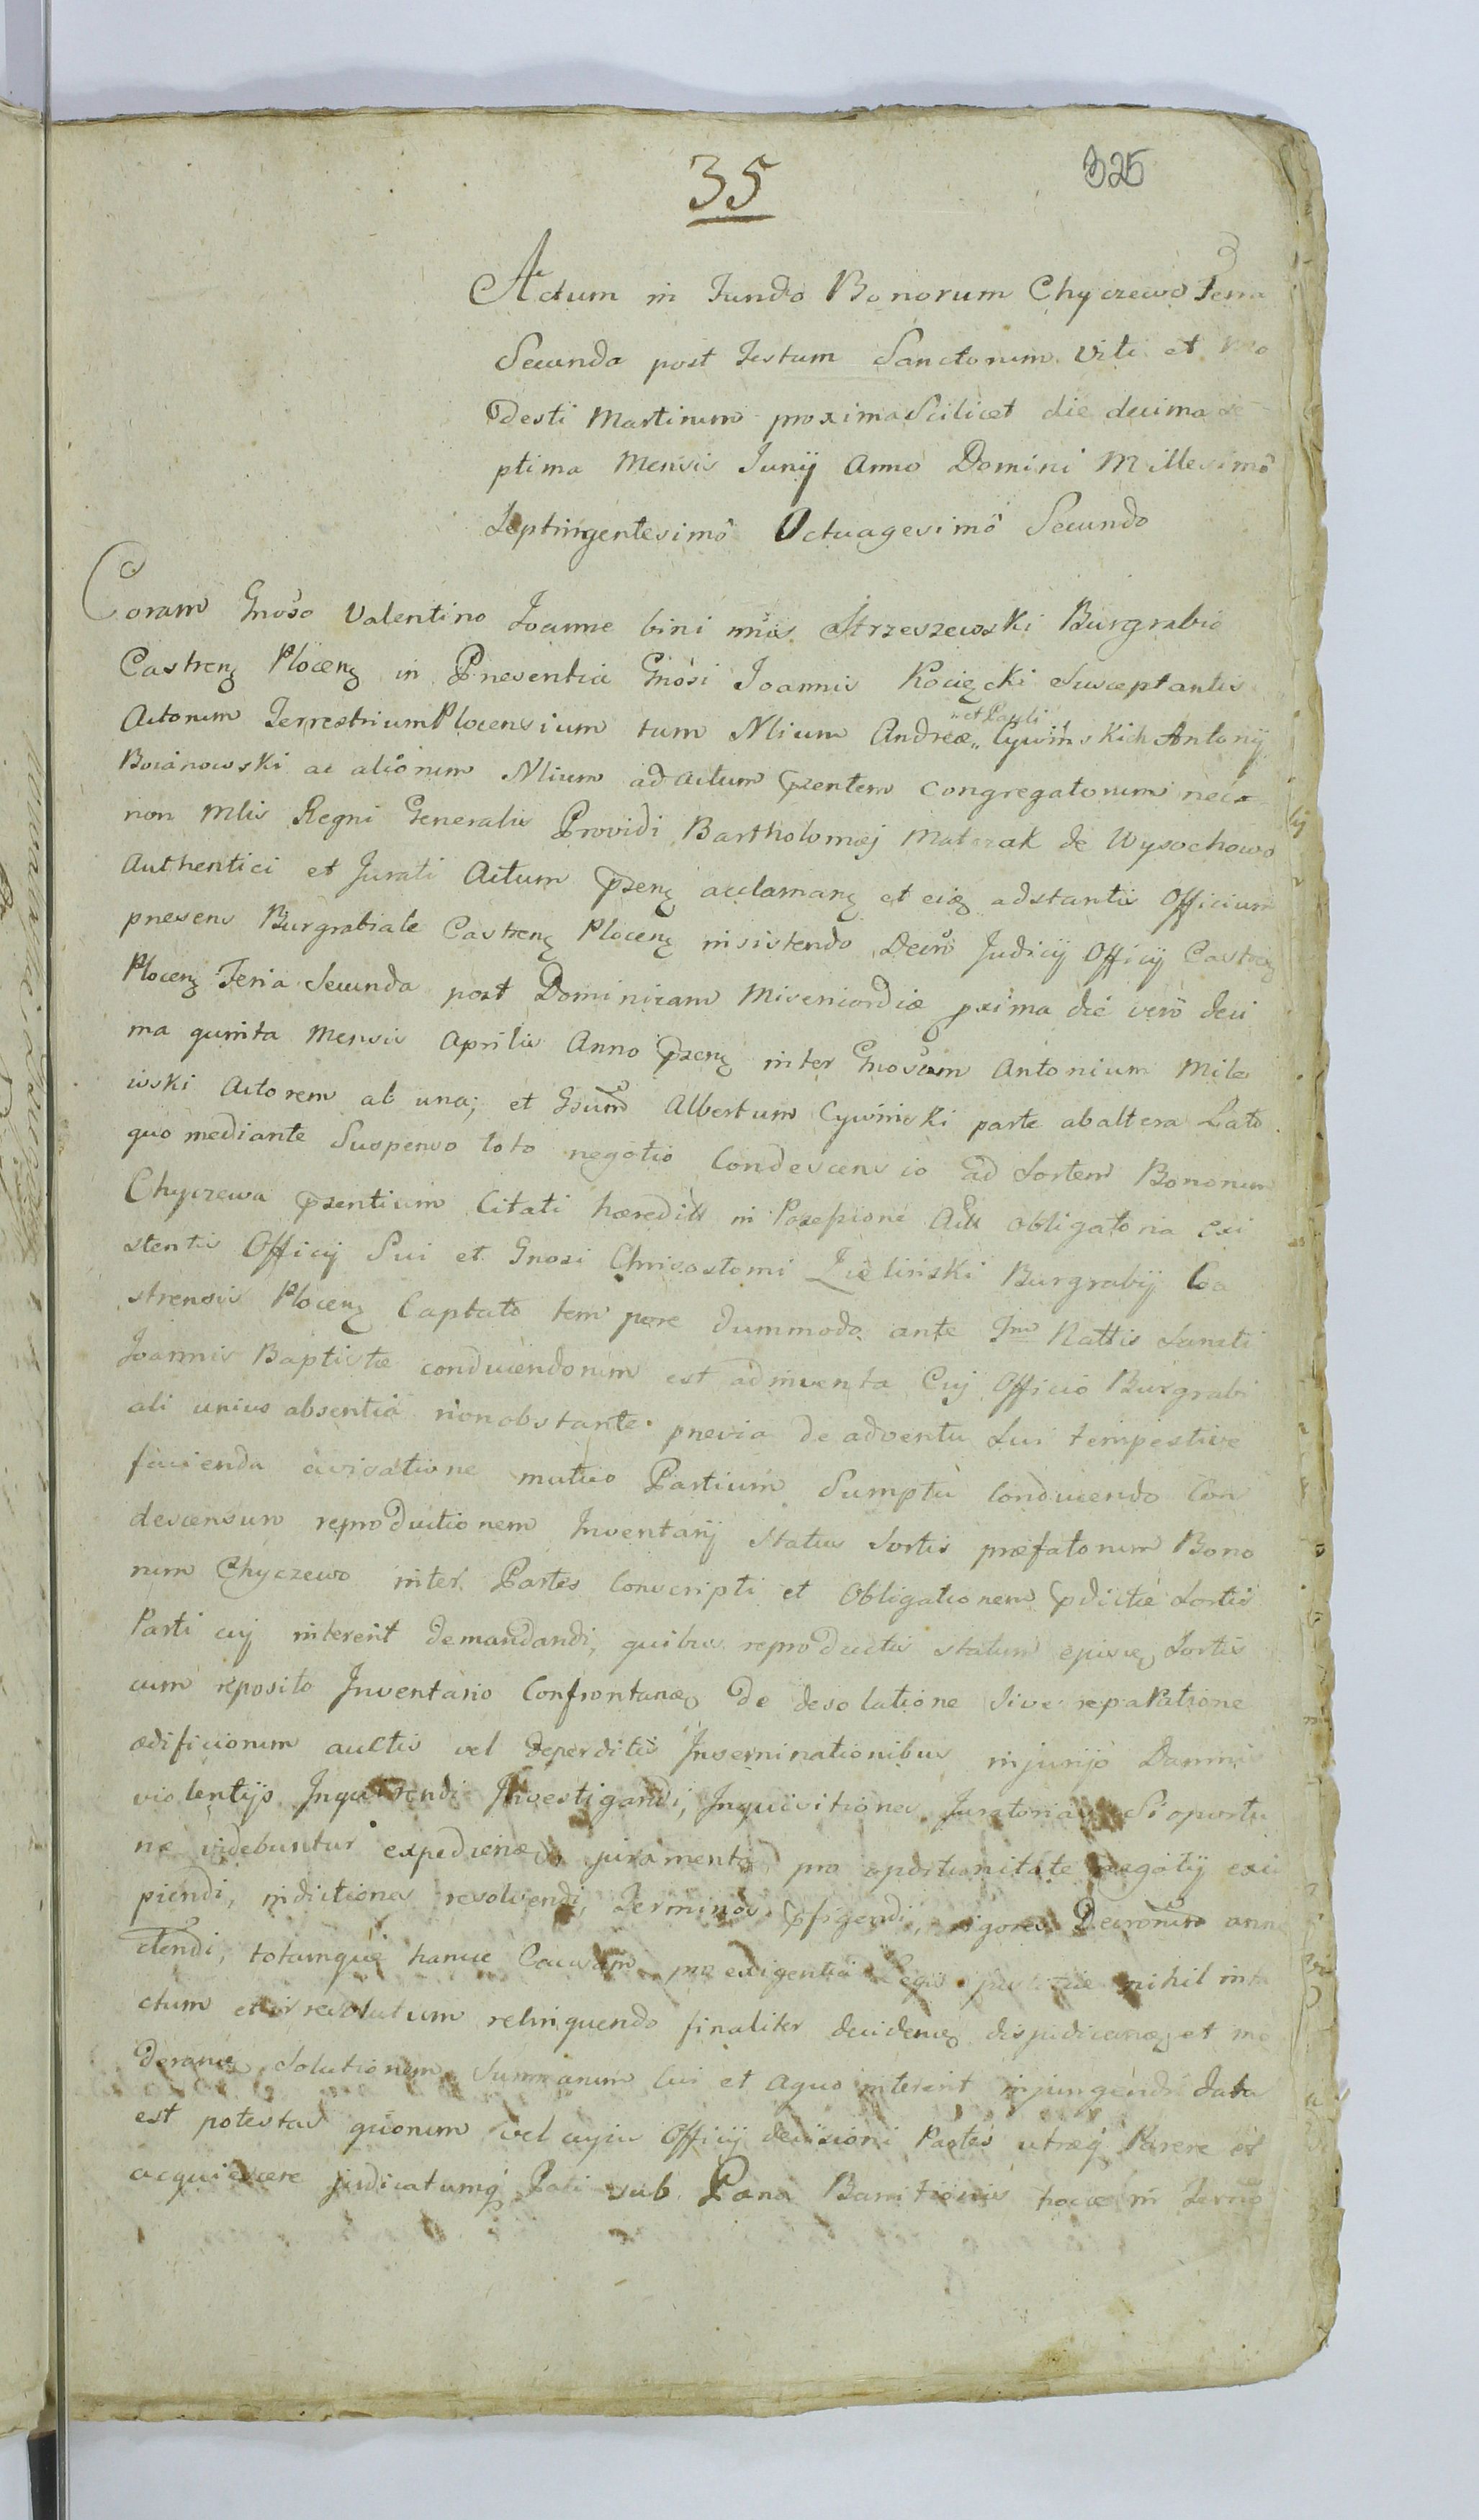 35
325
Actum in Fundo Bonorum Chyczewo Feria
Secunda post Festum Sanctorum Viti et Mo
desti Martirum proxima Scilicet die decima Se
ptima Mensis Junij Anno Domini Millesimô
Septingentesimô Octuagesimô Secundo
Coram Gnoso Valentino Joanne bini nnis Strzeszewski Burgrabio
Castrenȝ Plocenȝ in Presentia Gnosi Joannis Kocięcki Susceptantis
Actorum Terrestrium Plocensium tum Nlium Andreæ „ Cywińskich Antonij
„et Pauli
Boianowski ac aliorum Nlium ad Actum prentem Congregatorum nec
non Mlis Regni Generalis Providi Bartholomæj Matczak de Wysochowo
Authentici et Jurati Actum przenȝ acclamanȝ et eiȝ adstantis Officium
presens Burgrabiale Castrenȝ Plocenȝ insistendo Decro Judicij Officij Castrenȝ
Plocenȝ Feria Secunda post Dominicam Misericordiæ pxima die vero deci
ma quinta Mensis Aprilis Anno przenȝ inter Gnosum Antonium Mile
wski Actorem ab una; et Gsum Albertum Cywinski parte ab altera Lato
quo mediante Suspenso toto negotio Condescensio ad Sortem Bonorum
Chyczewa przentium Citati hæreditt in Possessione Actt obligatoria exi
stentis Officij Sui et Gnosi Chrisostomi Zieliński Burgrabij Ca
strensis Plocenȝ Captato tempore dummodo ante Fm Nattis Sancti
Joannis Baptistæ conducendorum est adinventa Cuj Officio Burgrabi
ali unius absentiâ non obstante previa de adventu Sui tempestive
facienda avisatione mutuo Partium Sumptu Conducendo Con
descensum reproductionem Inventarij Status Sortis præfatorum Bono
rum Chyczewo inter Partes Conscripti et Obligationem pdictæ Sortis
Parti cuj intererit demandandi, quibus reproductis statum ejusȝ Sortis
cum reposito Inventario Confrontanȝ de desolatione Sive reparatione
ædificiorum auctis vel deperditis Inseminationibus injurijs Damnis
violentijs Inquirendi Investigandi, Inquisitiones Juratorias Si oportu
næ videbuntur expedienȝ juramenta pro oportunitate negotij exci
piendi, indictiones resolvendi, Terminos pfigendi, rigores Decrorum anne
ctendi, totamque hance Causam pro exigentia Legis justitiæ nihil inta
ctum et irresolutum relinquendo finaliter decidenȝ disjudicanȝ et mo
deranȝ Solutionem Summarum Cui et a quo intererit injungendi data
est potestas quorum vel cujus Officij decisioni Partes utræq Parere et
acquiescere judicatumq Pati sub Pæna Bannitionis hocce in Termo